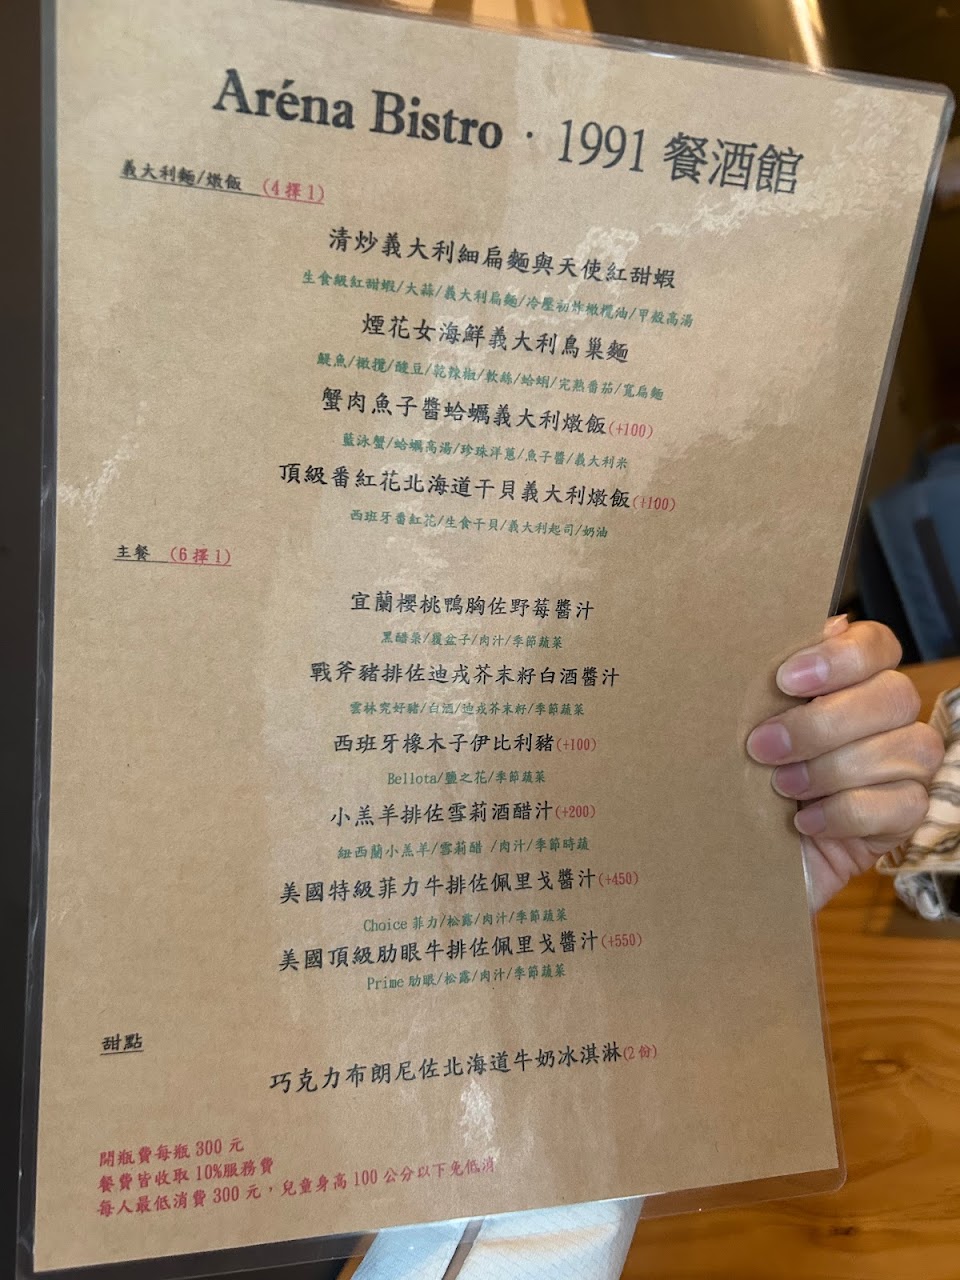 Aréna Bistro · 1991 餐酒館
義大利麵/燉飯 (4擇1)
清炒義大利細扁麵與天使紅甜蝦
生食級紅甜蝦/大蒜/義大利扁麵/冷壓初炸橄欖油/甲殼高湯
煙花女海鮮義大利鳥巢麵
鯷魚/橄欖/酸豆/乾辣椒/軟絲/蛤蜊/完熟番茄/寬扁麵
蟹肉魚子醬蛤蠣義大利燉飯(+100)
藍泳蟹/蛤蠣高湯/珍珠洋蔥/魚子醬/義大利米
頂級番紅花北海道干貝義大利燉飯(+100)
西班牙番紅花/生食干貝/義大利起司/奶油
主餐 (6擇1)
宜蘭櫻桃鴨胸佐野莓醬汁
黑醋栗/覆盆子/肉汁/季節蔬菜
戰斧豬排佐迪戎芥末籽白酒醬汁
雲林究好豬/白酒/迪戎芥末籽/季節蔬菜
西班牙橡木子伊比利豬(+100)
Bellota/鹽之花/季節蔬菜
小羔羊排佐雪莉酒醋汁(+200)
紐西蘭小羔羊/雪莉醋 /肉汁/季節時蔬
美國特級菲力牛排佐佩里戈醬汁(+450)
Choice菲力/松露/肉汁/季節蔬菜
美國頂級肋眼牛排佐佩里戈醬汁(+550)
Prime肋眼/松露/肉汁/季節蔬菜
甜點
巧克力布朗尼佐北海道牛奶冰淇淋(2份)
開瓶費每瓶300元
餐費皆收取10%服務費
每人最低消費300元，兒童身高100公分以下免低消